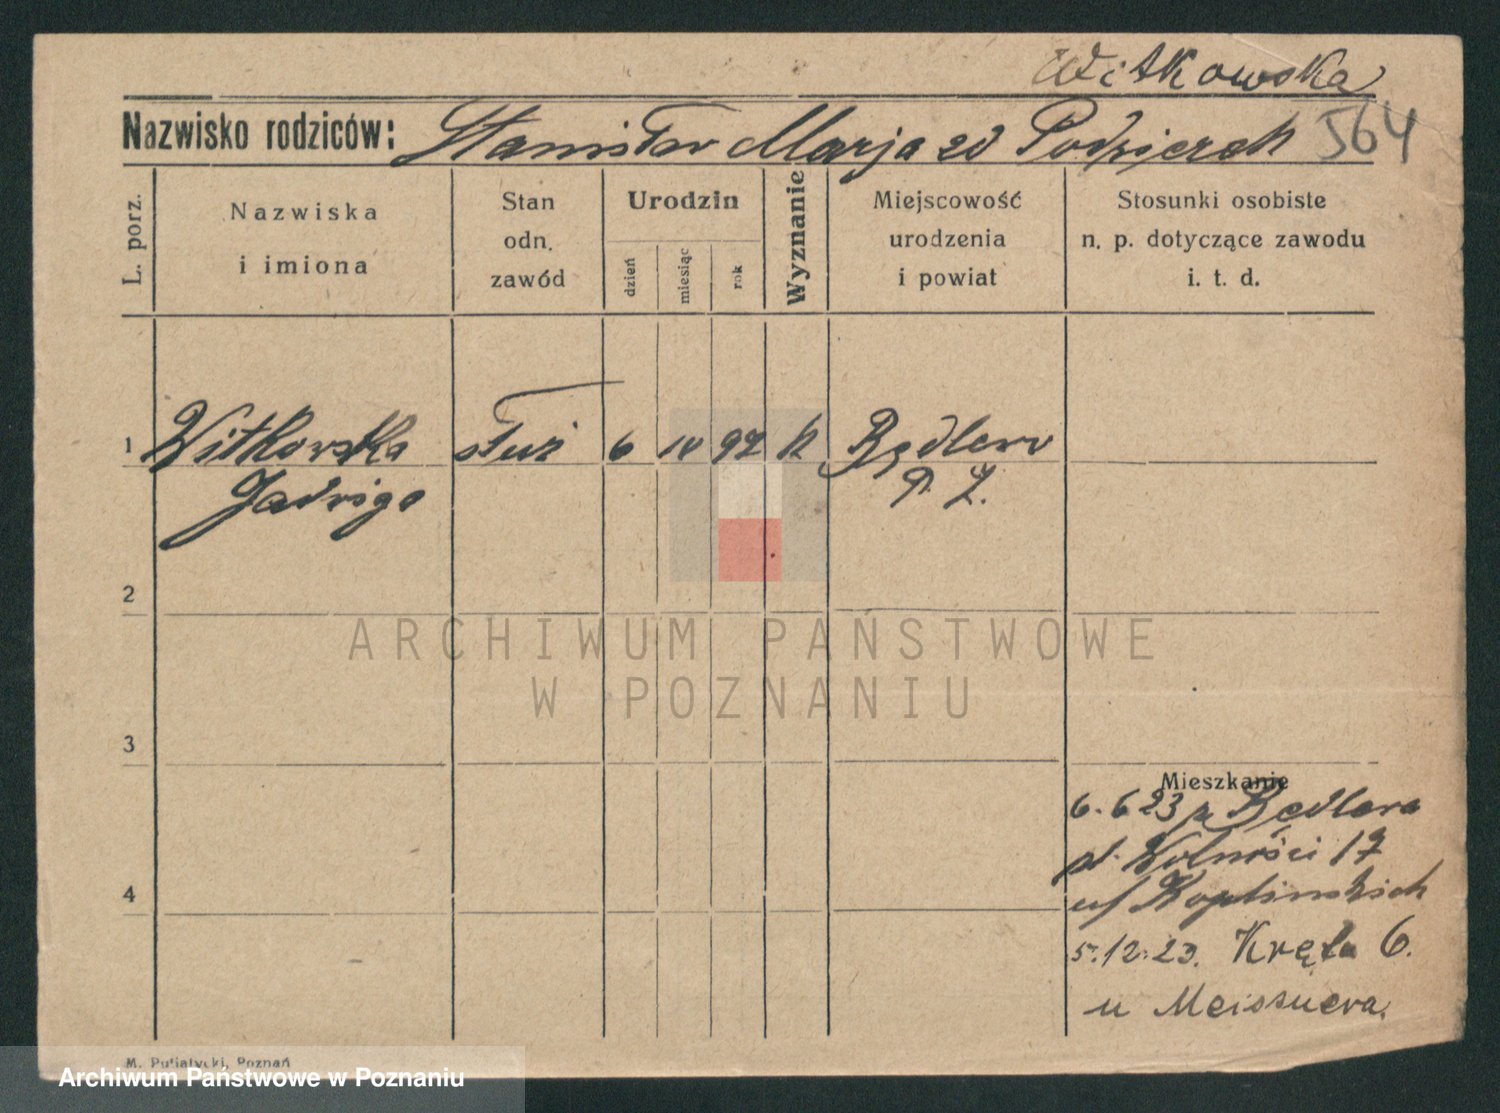 Witkowska
Nazwisko rodziców: Stanisław Marja zd Podzierek 564
L. porz.
Nazwiska
i imiona
Stan
odn.
zawód
Urodzin
dzień
miesiąc
rok
Wyznanie
Miejscowość
urodzenia
i powiat
Stosunki osobiste
n. p. dotyczące zawodu
i. t. d.
1 Witkowska służ 6 IV 97 k Będlew
Jadwiga
2
ARCHIWUM PAŃSTWOWE
W POZNANIU
3
Mieszkanie
6.6 23 z Będlewa
pl. Wolności 17
4
5.12.23. Kręta 6.
u Meissnera.
M. Putiatycki, Poznań
Archiwum Państwowe w Poznaniu